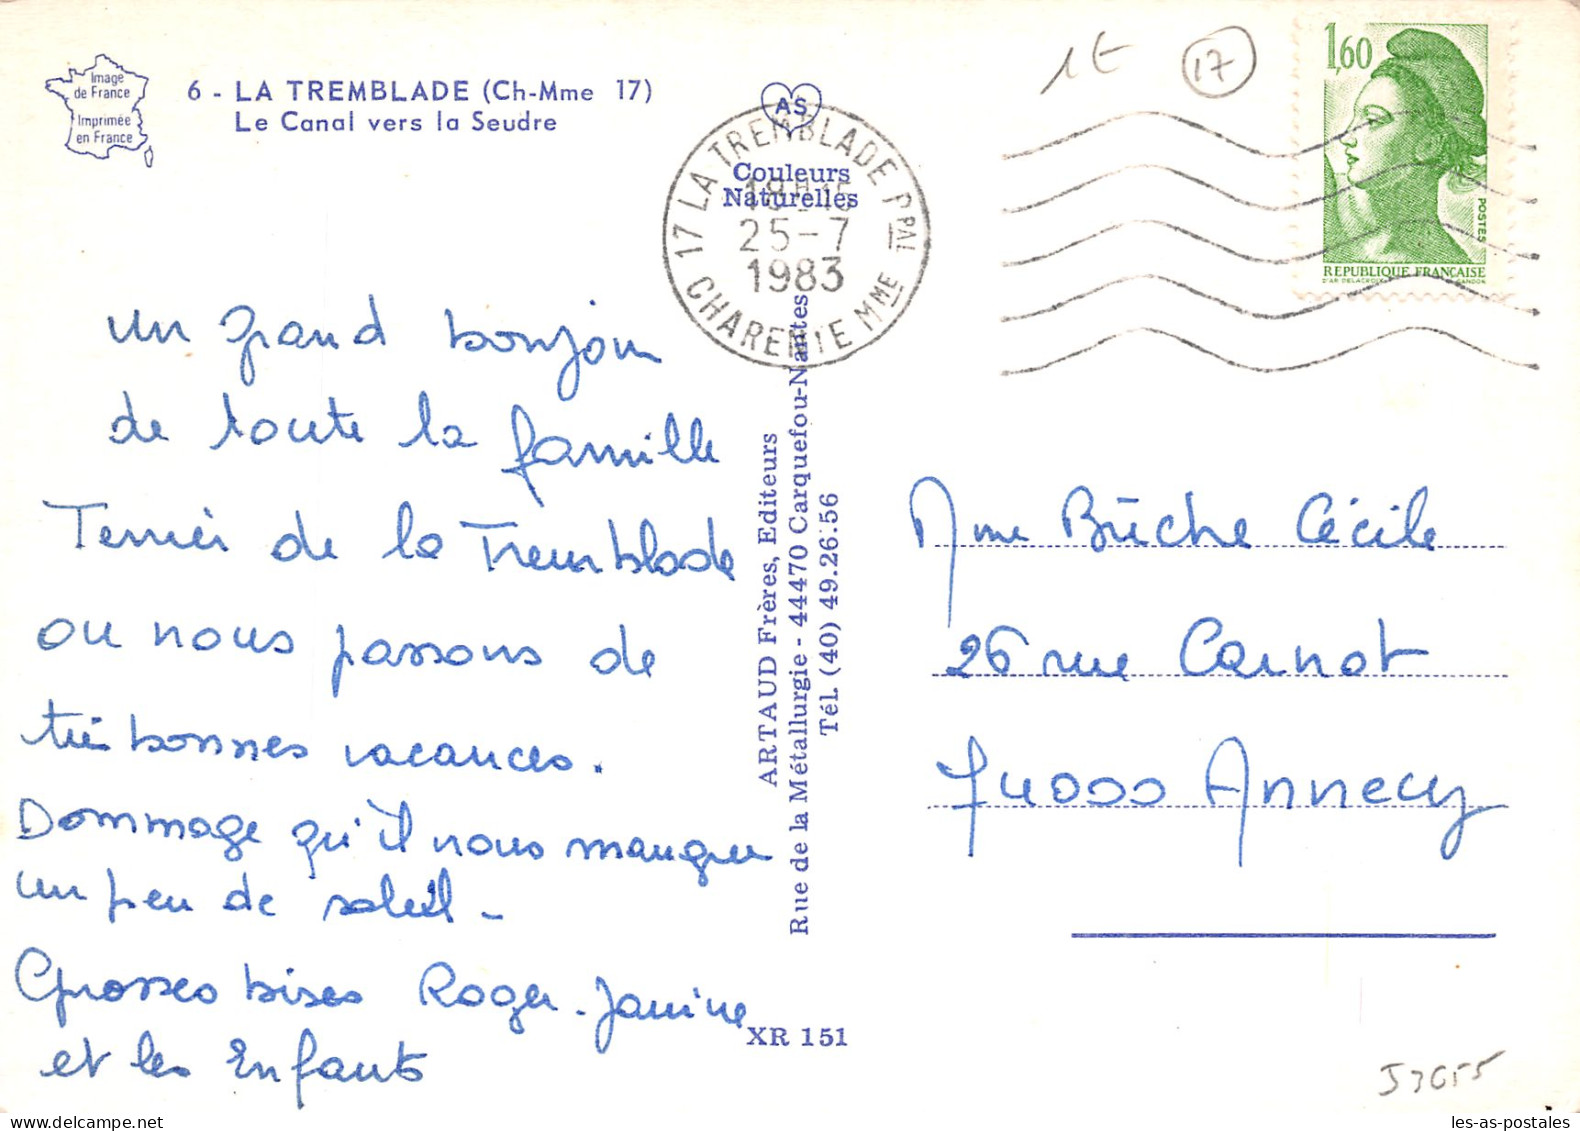 Image
de France
Imprimée
en France
6 - LA TREMBLADE (Ch-Mme 17)
Le Canal vers la Seudre
AS
Couleurs
Naturelles
17 LA TREMBLADE PPAL
25-7
1983
CHARENTE MME
1€
17
1,60
POSTES
REPUBLIQUE FRANÇAISE
D'AP. DELACROIX GANDON
un grand bonjour
de toute la famille
Terrier de la Tremblade
ou nous passons de
très bonnes vacances.
Dommage qu'il nous manque
un peu de soleil -
Grosses bises Roger - Janine
et les Enfants
ARTAUD Frères, Editeurs
Rue de la Métallurgie - 44470 Carquefou-Nantes
Tél. (40) 49.26.56
XR 151
Mme Brèche Cécile
26 rue Carnot
74000 Annecy
les-as-postales